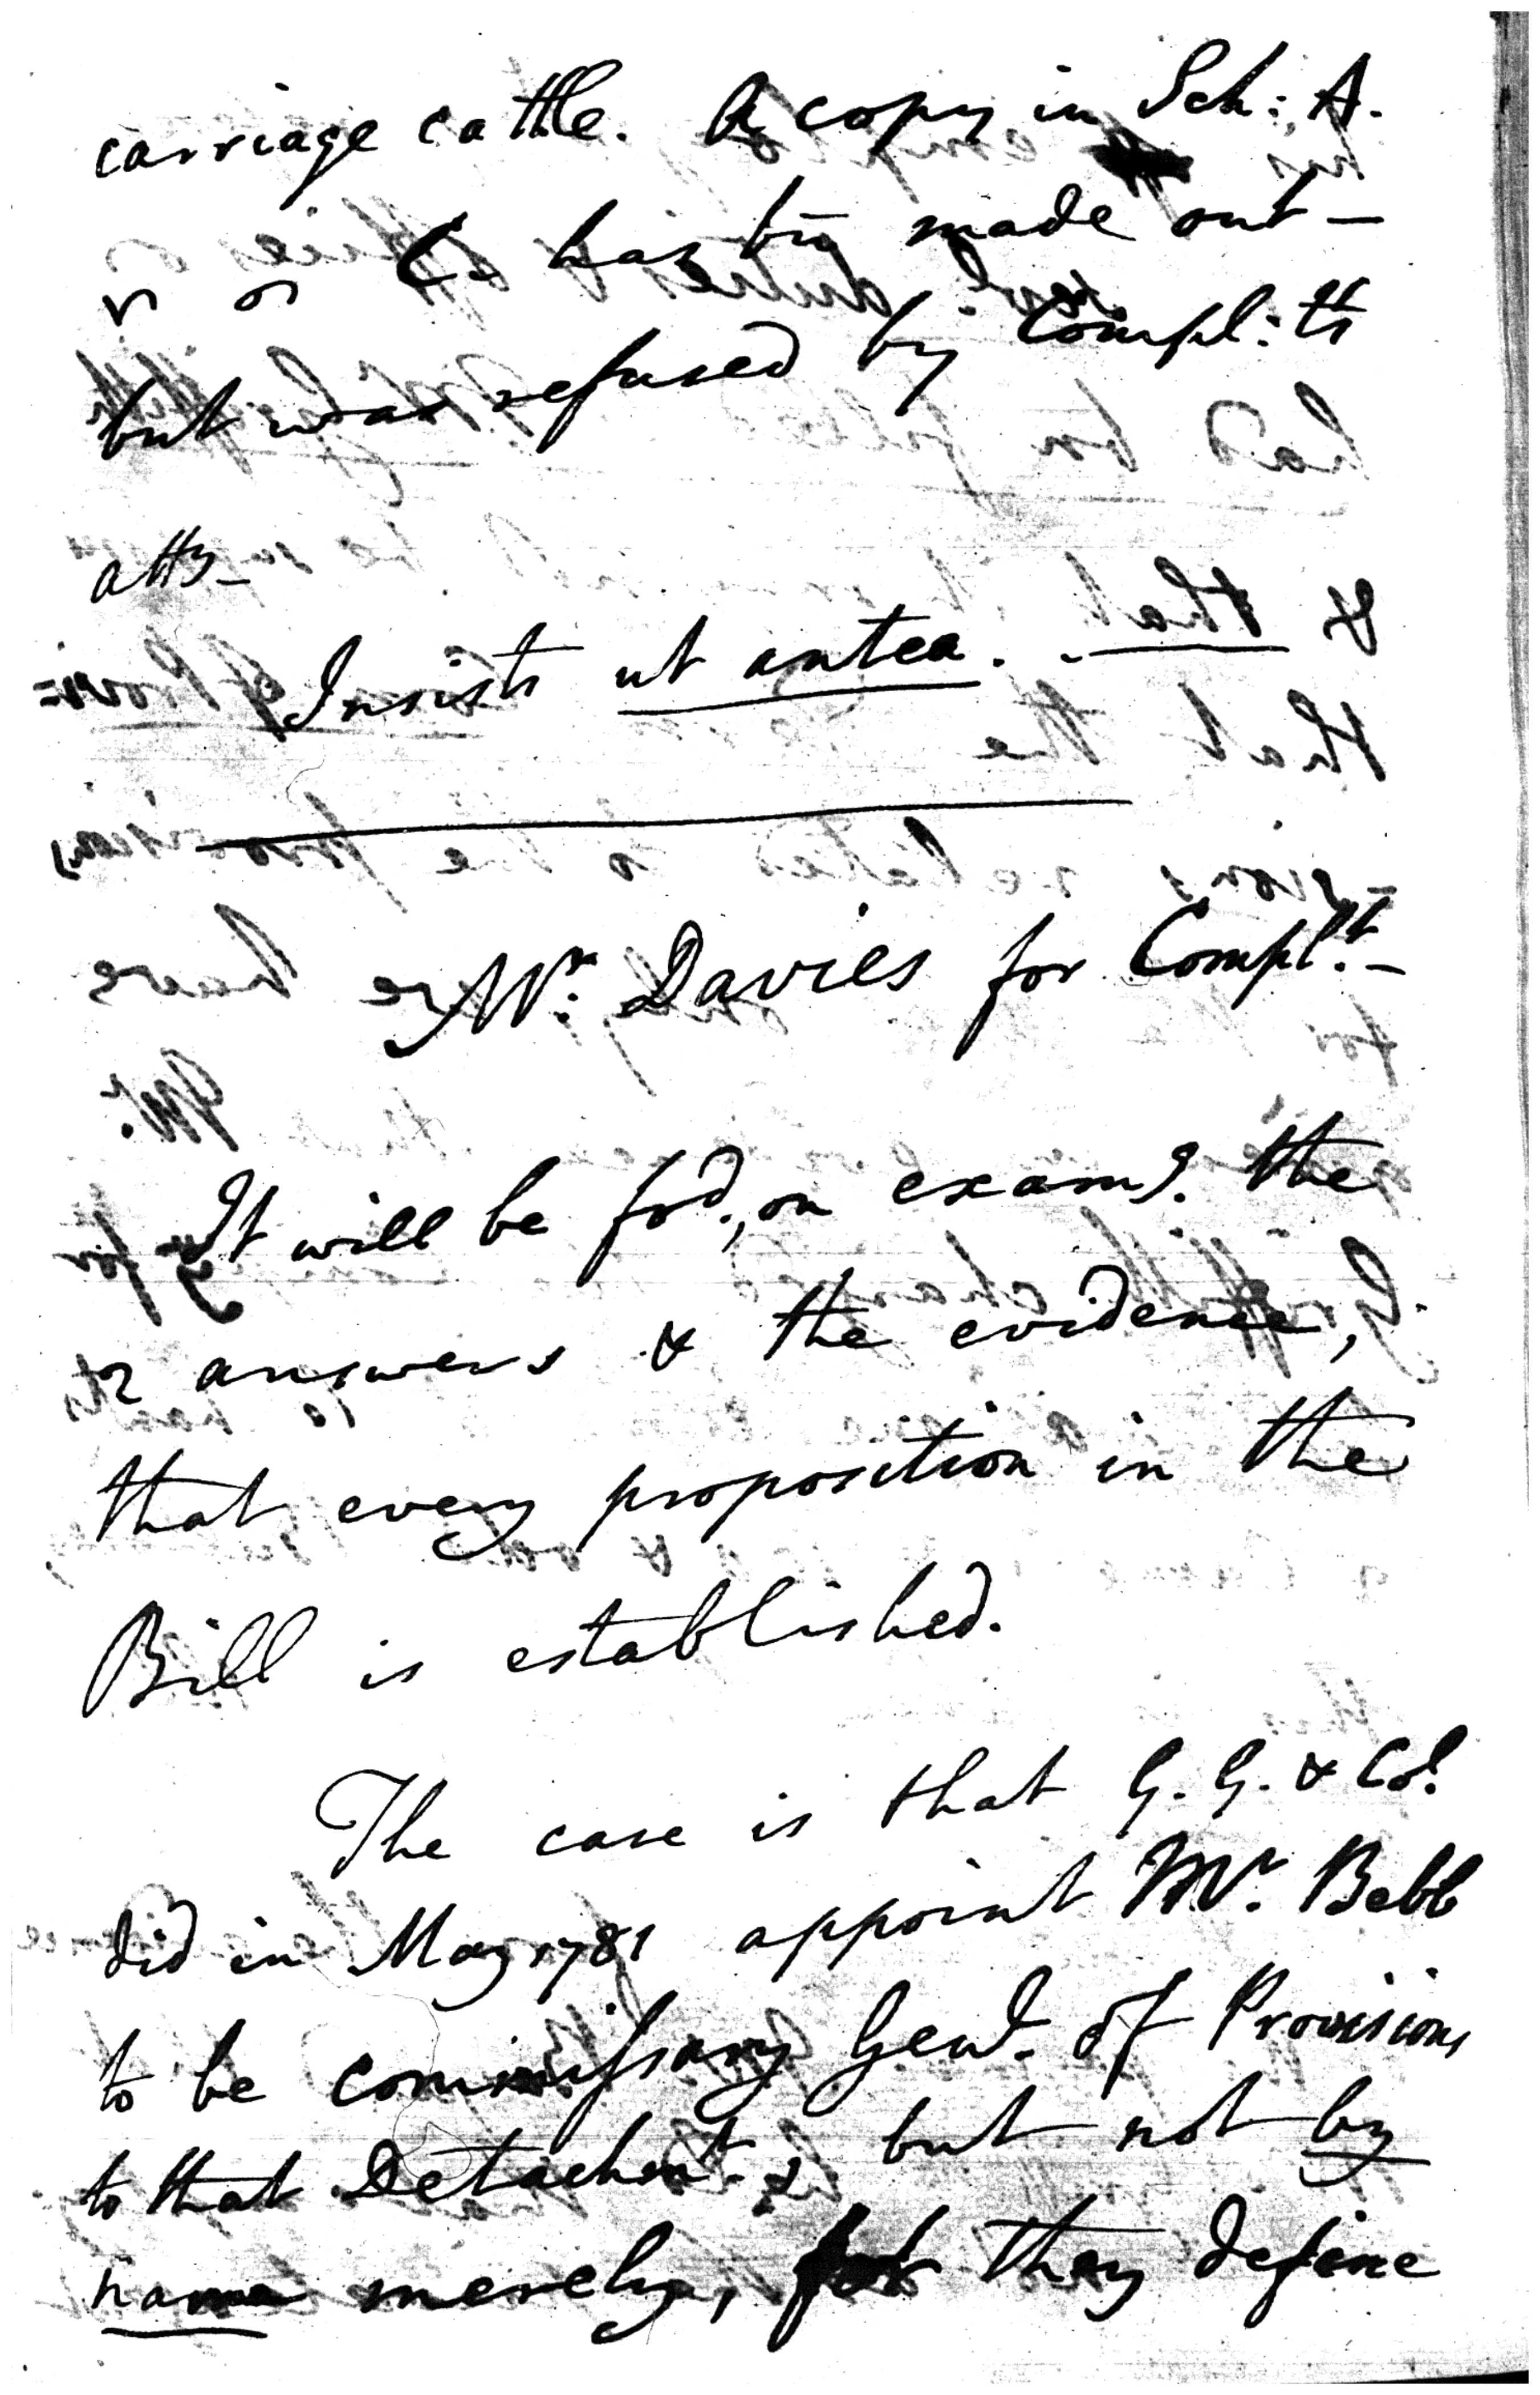 carriage cattle. A copy in Sch: A.
or C. has bn̄ made out —
but was refused by Compl:ts
atty —
Insists ut antea.
Mr. Davies for Complt. —
It will be fo'd., on examg. the
2 answers & the evidence,
that every proposition in the
Bill is established.
The case is that G. G. & Col.
did in May 1781 appoint Mr. Bebb
to be commissary Genl. of Provisions
to that Detachmt. & but not by
name merely, for they define